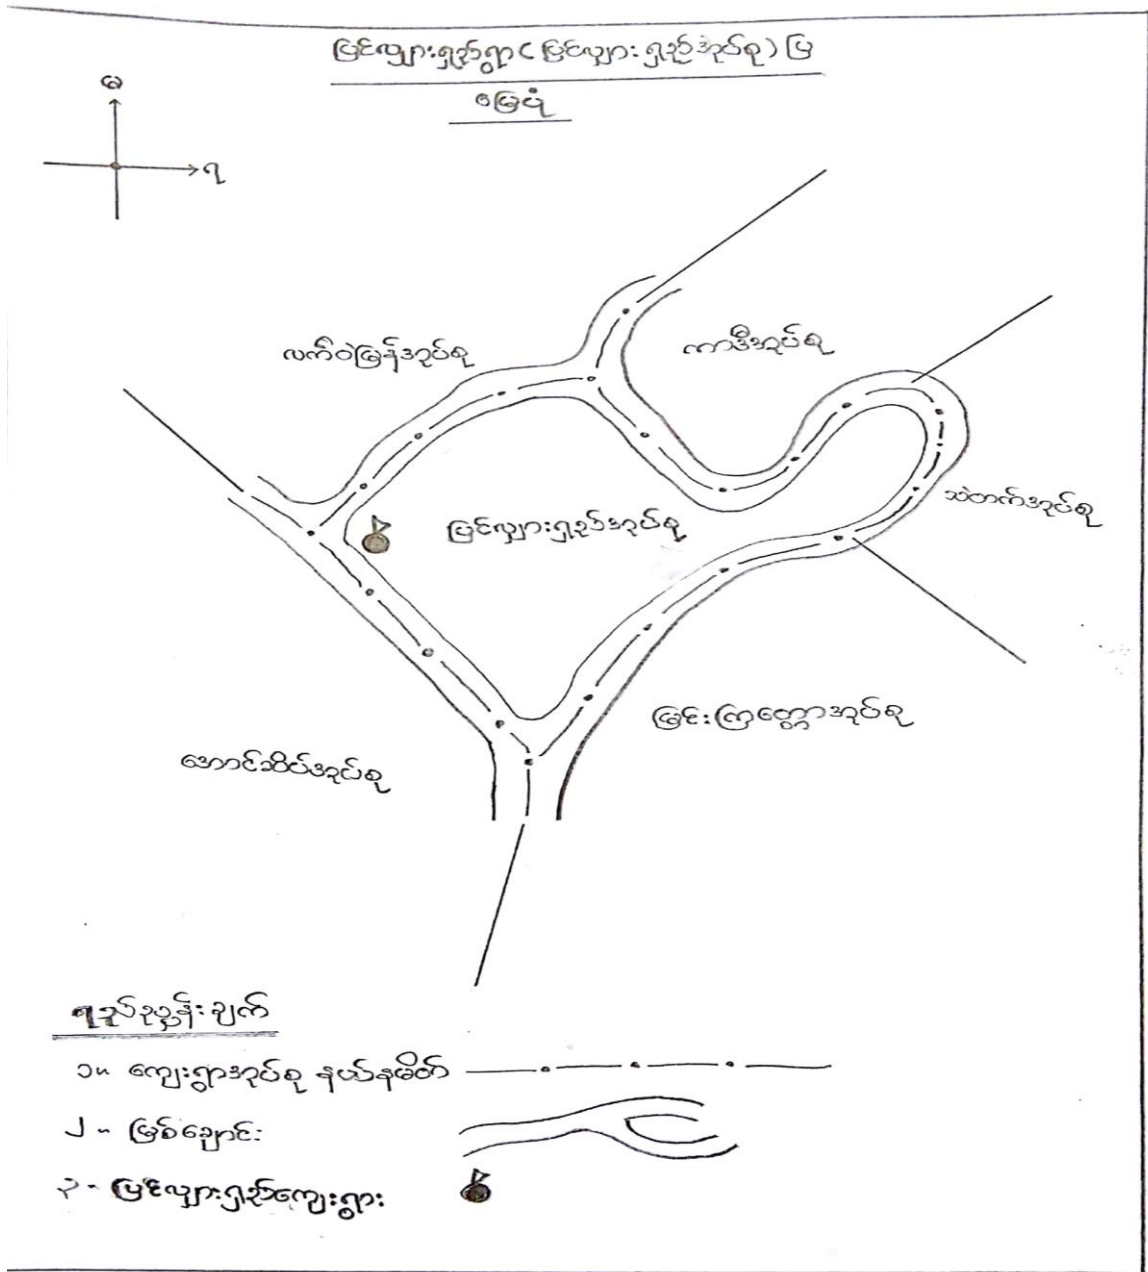 မြင်လှျားရှည်ရွာ (မြင်လှျားရှည်အုပ်စု) ပြ
မြေပုံ
မ
ရ
လက်ဝဲမြန်အုပ်စု
ကာဒီအုပ်စု
သဲတက်အုပ်စု
မြင်လှျားရှည်အုပ်စု
အောင်ဆိပ်အုပ်စု
မြင်းကြတ္တောအုပ်စု
ရည်ညွှန်းချက်
၁။ ကျေးရွာအုပ်စု နယ်နမိတ်
၂။ မြစ်ချောင်း
၃။ မြင်လှျားရှည်ကျေးရွား